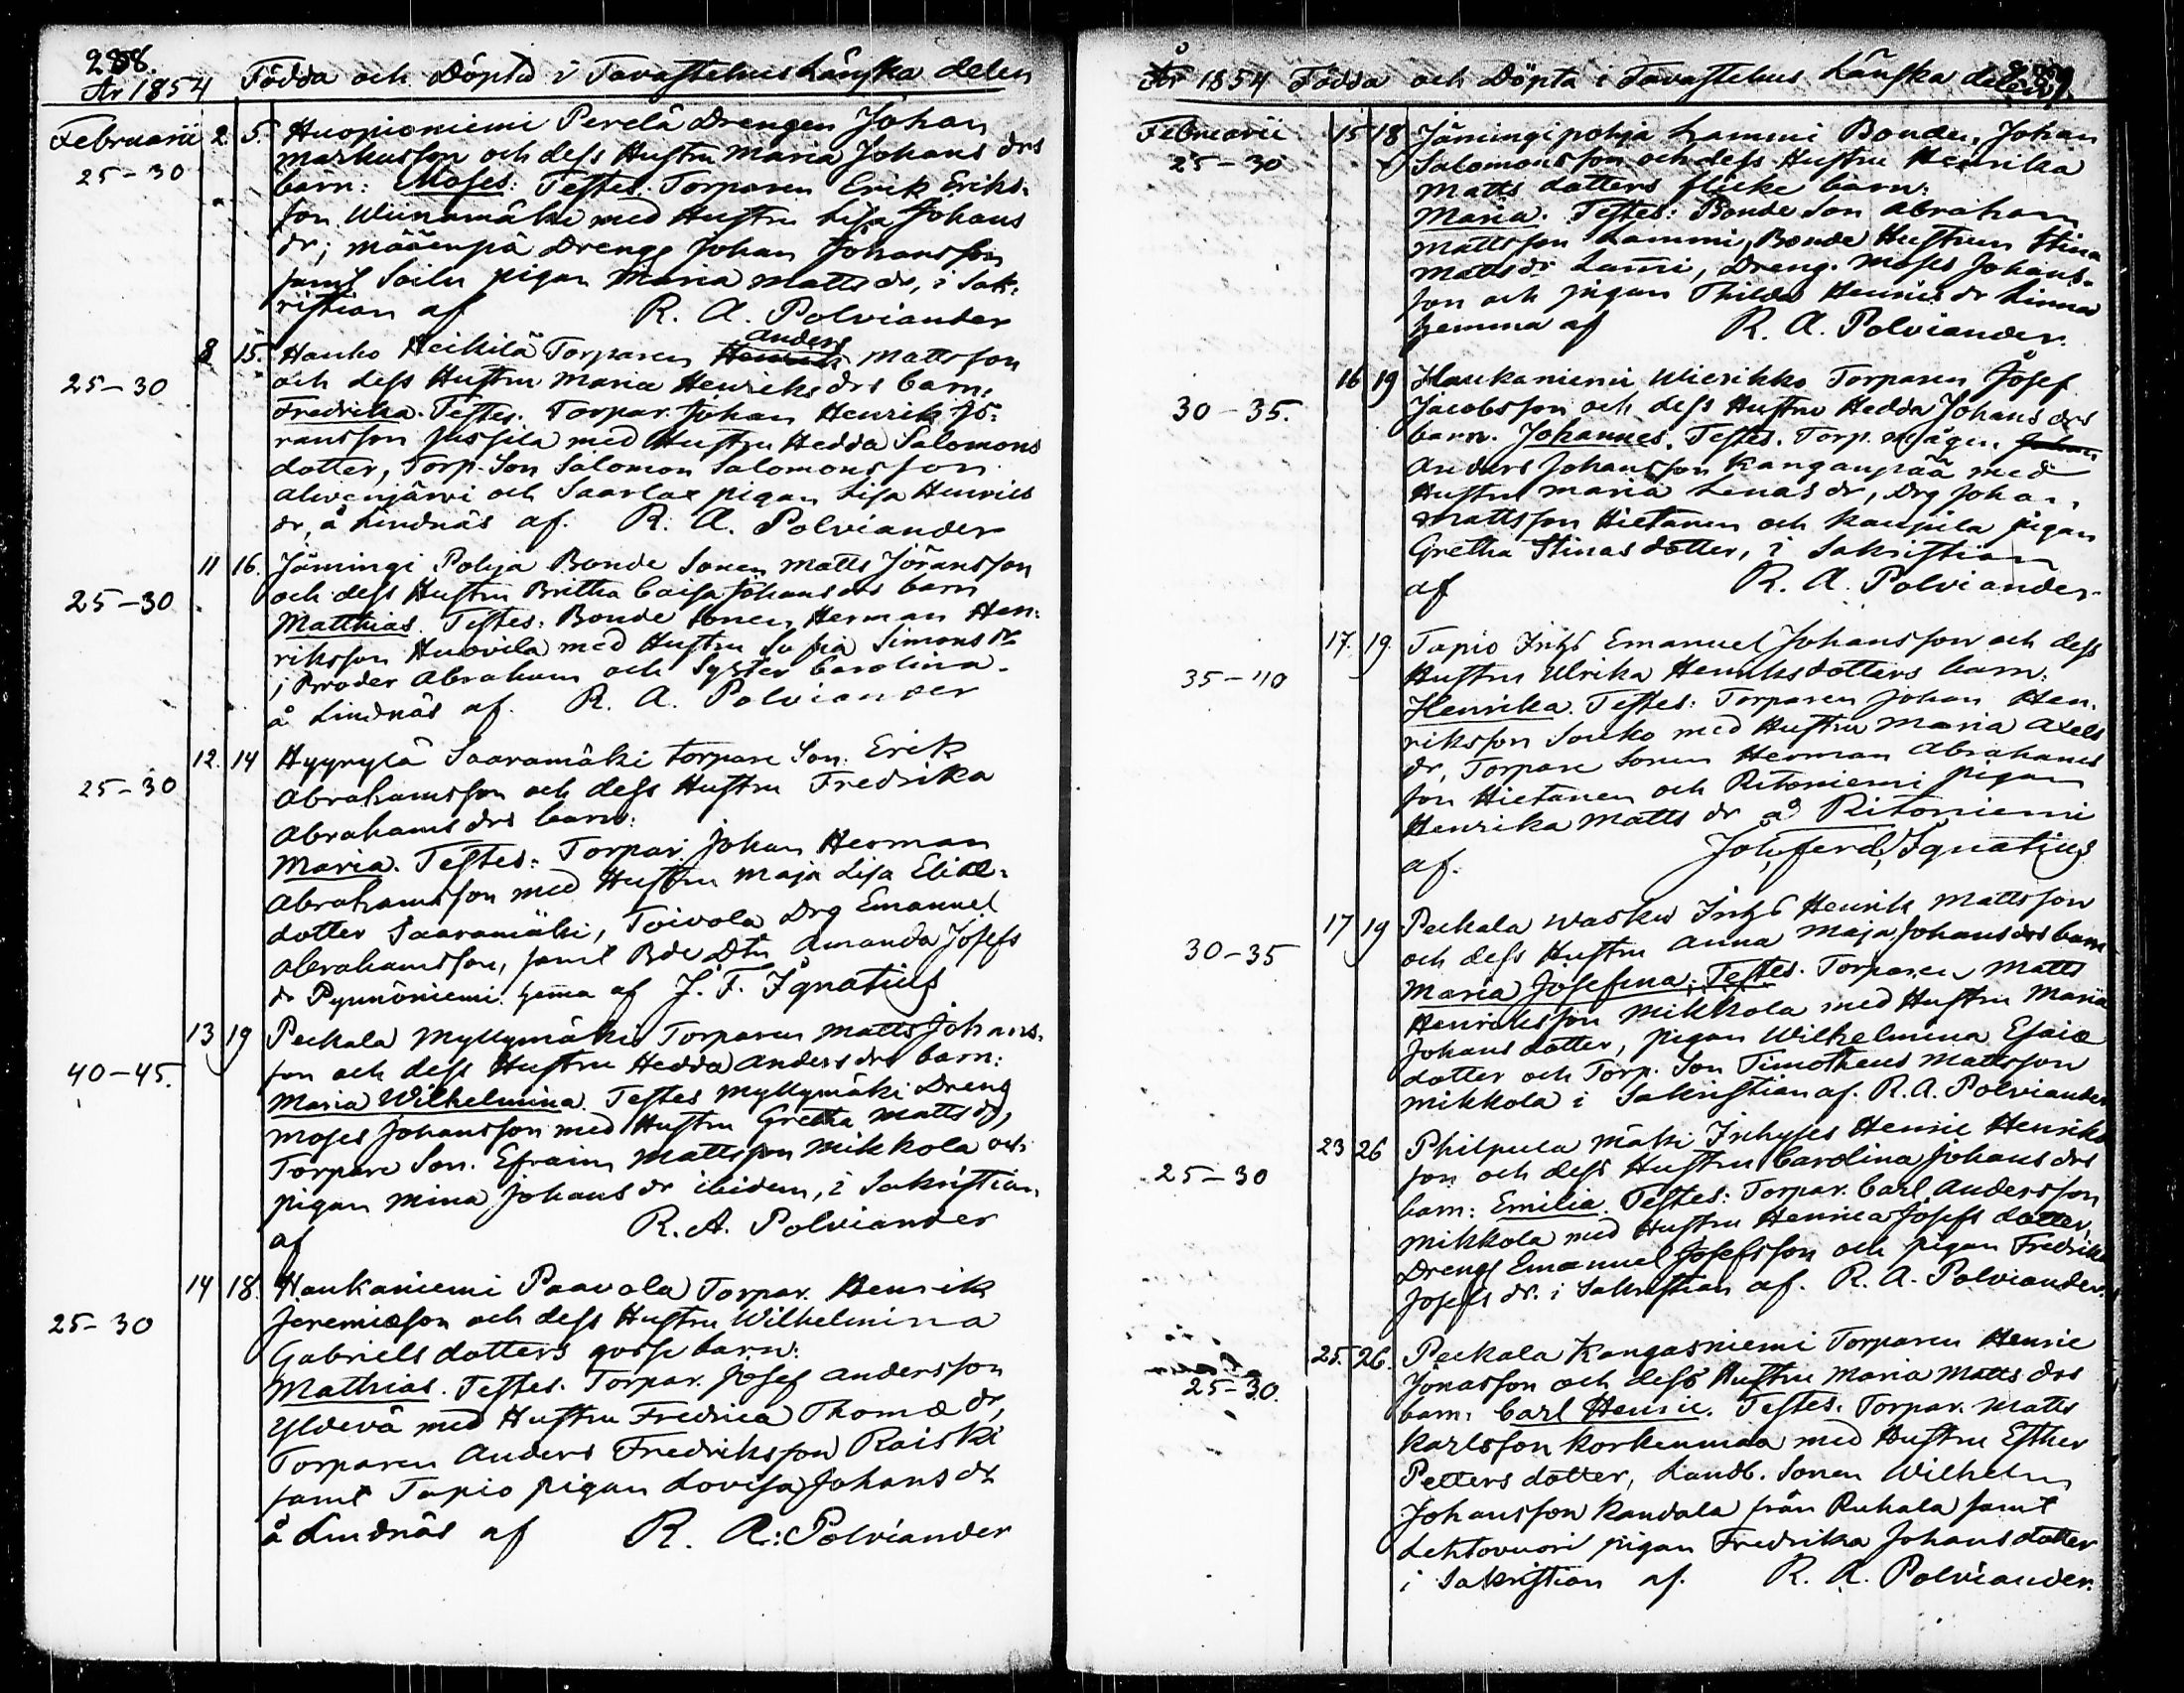 288.
År 1854 Födda och Döpta i Tavastehus Länska delen
Februarii 2. 5. Huopioniemi Perelä Drengen Johan
25-30 Markusson och dess Hustru Maria Johans drs
barn: Moses: Testes. Torparen Erik Eriks-
son Wiinamäki med Hustru Lisa Johans
dr; Määenpä Dreng Johan Johansson
samt Soilu pigan Maria Matts dr, i Sak-
ristian af R. A. Polviander
8 15. Hauho Heikilä Torparen Anders Mattsson
25-30 och dess Hustru Maria Henriks drs barn:
Fredrika. Testes. Torpar. Johan Henrik Jö-
ransson Jussila med Hustru Hedda Salomons
dotter, Torp. Son Salomon Salomonsson
Alvenjärvi och Saarlax pigan Lisa Henrics
dr, å Lindnäs af. R. A. Polviander
11 16. Jämingi Pohja Bonde Sonen Matts Jöransson
25-30 och dess Hustru Britha Caisa Johans drs barn
Matthias. Testes: Bonde Sonen Herman Hen-
riksson Huovila med Hustru Sofia Simons dr
; Broder Abraham och Syster Carolina.
å Lindnäs af. R. A. Polviander
12. 14 Hyyrylä Saaramäki torpare Son. Erik
25-30 Abrahamsson och dess Hustru Fredrika
Abrahams drs barn:
Maria. Testes: Torpar. Johan Herman
Abrahamsson med Hustru Maja Lisa Eliæ-
dotter Saaramäki, Toivola Drg Emanuel
Abrahamsson, samt Bde Dtn Amanda Josefs
dr Pynnöniemi. hema af J. F. Ignatius
13 19 Peckala Myllymäki Torparen Matts Johans-
40-45. son och dess Hustru Hedda Anders drs barn:
Maria Wilhelmina. Testes Myllymäki Dreng
Moses Johansson med Hustru Gretha Matts dr,
Torpare Son. Efraim Mattsson Mikkola och
pigan Mina Johans dr ibidem, i Sakristian
af R. A. Polviander
14 18. Haukaniemi Paavola Torpar. Henrik
25-30 Jeremiæson och dess Hustru Wilhelmina
Gabriels dotters gosse barn:
Mathias. Testes. Torpar. Josef Andersson
Yldevä med Hustru Fredrica Thomæ dr,
Torparen Anders Fredriksson Raiski
samt Tapio pigan Lovisa Johans dr
å Lindnäs af R. A: Polviander
År 1854 Födda och Döpta i Tavastehus Länska delen
Februarii 15 18 Jämingi pohja Lammi Bonden, Johan
25-30 Salomonsson och dess Hustru Henrika
Matts dotters flicke barn:
Maria. Testes: Bonde Son Abraham
Mattsson Lammi, Bonde Hustrun Stina
Matts dr Lami, Dreng. Moses Johans-
son och pigan Thilda Henrics dr Linna
hemma af R. A. Polviander.
16 19 Haukaniemi Wierikko Torparen Josef
30-35. Jacobsson och dess Hustru Hedda Johans drs
barn. Johannes. Testes. Torp. mågen Johan
Anders Johansson Kanganpää med
Hustru Maria Lenas dr, Drg Johan
Mattsson Hietanen och Kaupila pigan
Gretha Stinas dotter, i Sakristian
af R. A. Polviander
17. 19. Tapio Inhs Emanuel Johansson och dess
35-40 Hustru Ulrika Henriksdotters barn:
Henrika. Testes: Torparen Johan Hen-
riksson Souko med Hustru Maria Axels
dr, Torpare Sonen Herman Abrahams
son Hietanen och Ritoniemi pigan
Henrika Matts dr å Ritoniemi
af. Joh, ferd, Ignatius
17 19 Peckala Wasku Inhs Henrik Mattsson
30-35 och dess Hustru Anna Maja Johans drs barn
Maria Josefina: Testes. Torparen Matts
Henriksson Mikkola med Hustru Maria
Johans dotter, pigan Wilhelmina Esaiæ
dotter och Torp. Son Timotheus Mattsson
Mikkola i Sakristian af. R. A. Polviander
23 26 Philpula Mäki Inhyses Henric Henriks
25-30 son och dess Hustru Carolina Johans drs
barn: Emilia. Testes: Torpar. Carl Andersson
Mikkola med Hustru Henrica Josefs dotter,
Dreng Emanuel Josefsson och pigan Fredrika
Josefs dr. i Sakristian af. R. A. Polviander.
25. 26. Peckala Kangasniemi Torparen Henric
25-30. Jonasson och dess Hustru Maria Matts drs
barn: Carl Henric. Testes. Torpar. Matts
Karlsson Korkenmaa med Hustru Esther
Petters dotter, Landb. Sonen Wilhelm
Johansson Kandala från Ruhala samt
Lehtovuori pigan Fredrika Johans dotter
i Sakristian af. R. A. Polviander.